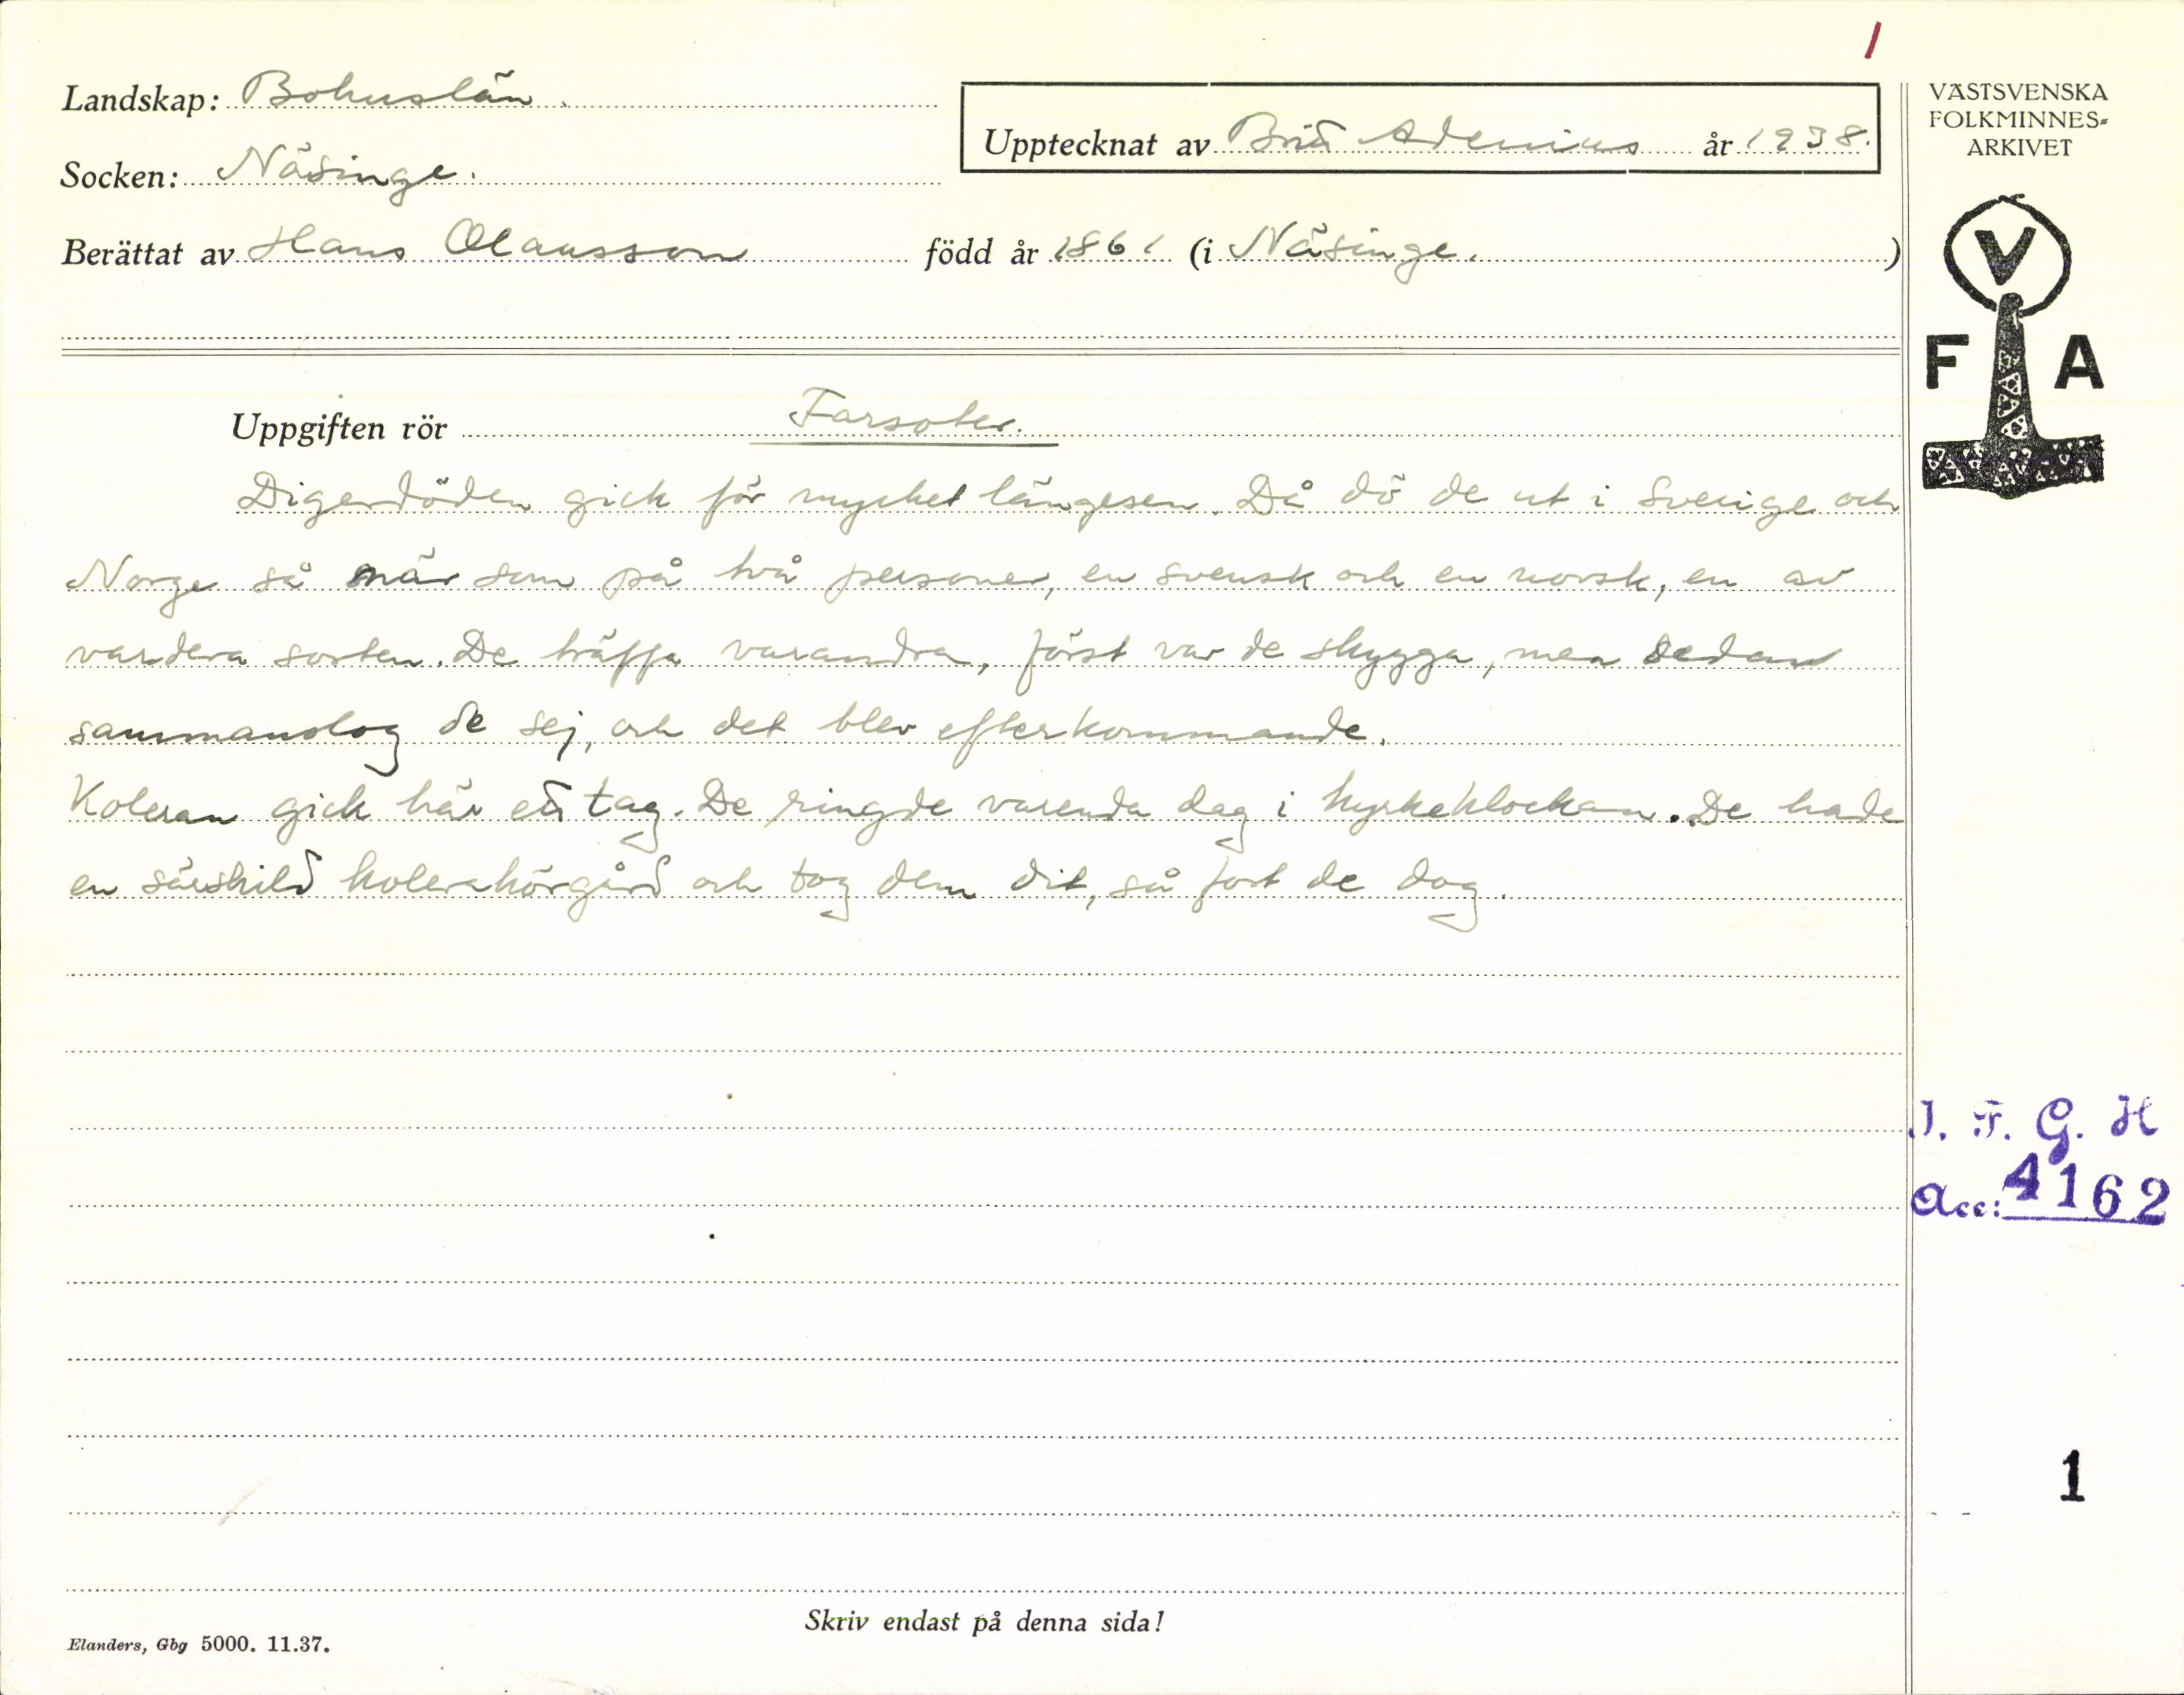 1
Landskap: Bohuslän.
VÄSTSVENSKA
FOLKMINNES-
ARKIVET
Upptecknat av Brita Adenius år 1938.
Socken: Näsinge.
Berättat av Hans Olausson född år 1861 (i Näsinge. )
V
F A
Uppgiften rör Farsoter.
Digerdöden gick för mycket längesen. Då dö de ut i Sverige och
Norge så när som på två personer, en svensk och en norsk, en av
vardera sorten. De träffa varandra, först var de skygga, men sedan
sammanslog de sej, och det blev efterkommande.
Koleran gick här ett tag. De ringde varenda dag i kyrkeklockan. De hade
en särskild kolerakörgård och tog dem dit, så fort de dog.
I. F. G. H
Acc: 4162
1
Skriv endast på denna sida!
Elanders, Gbg 5000. 11.37.